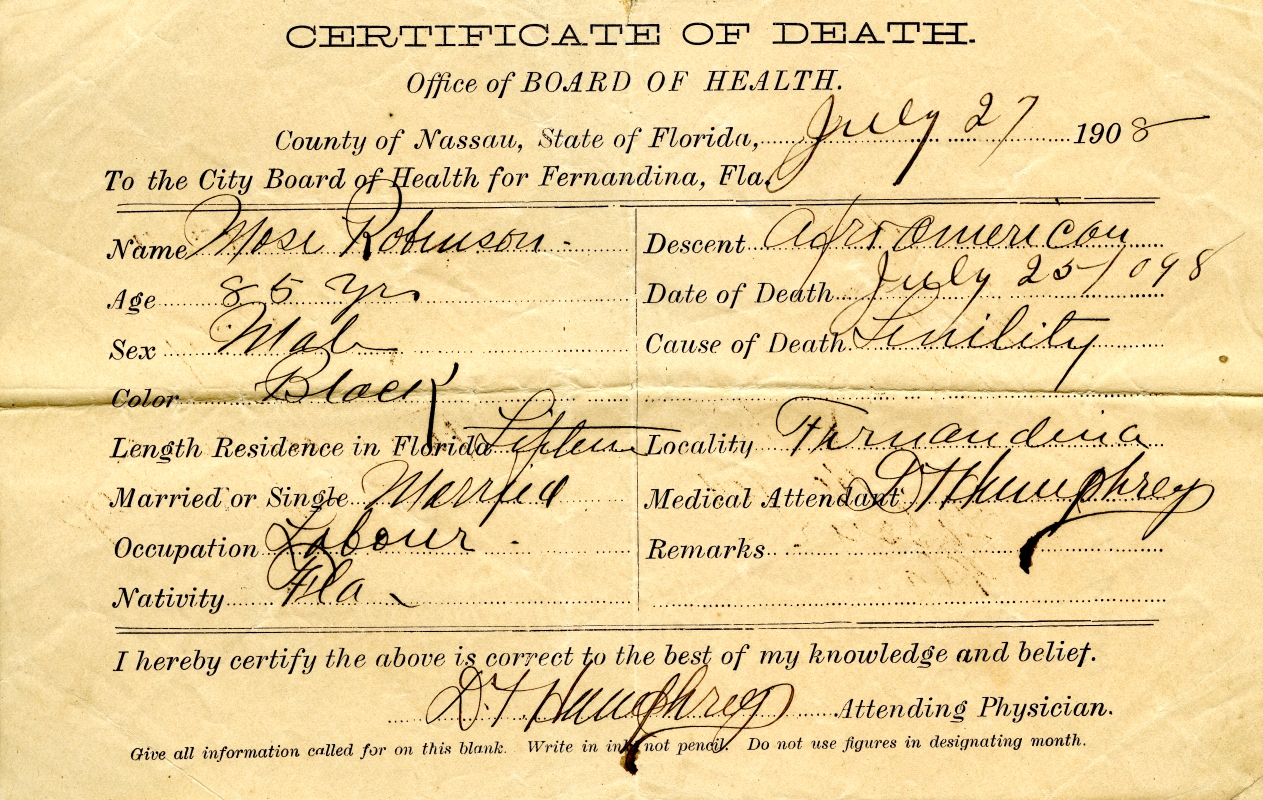 CERTIFICATE OF DEATH.
Office of BOARD OF HEALTH.
County of Nassau, State of Florida, July 27 1908
To the City Board of Health for Fernandina, Fla.
Name Mose Robinson
Descent Afro American
Age 85 Yrs
Date of Death July 25/098
Sex Male
Cause of Death Senility
Color Black
Length Residence in Florida Lifetime
Locality Fernandina
Married or Single Married
Medical Attendant D T Humphrey
Occupation Labour
Remarks
Nativity Fla
I hereby certify the above is correct to the best of my knowledge and belief.
D T Humphrey Attending Physician.
Give all information called for on this blank. Write in ink not pencil. Do not use figures in designating month.